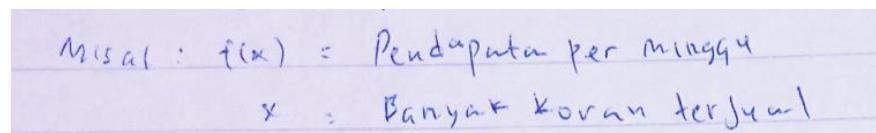 Misal : f(x) = Pendapatan per minggu
x : Banyak koran terjual